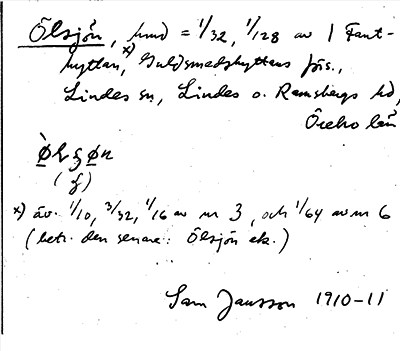 Ölsjön, hmd = 1/32, 1/128 av 1 Fant-
hyttan, x) Guldsmedshyttans förs.,
Lindes sn, Lindes o. Ramsbergs hd,
Örebro län
(f)
x) äv. 1/10, 3/32, 1/16 av nr 3, och 1/64 av nr 6
(betr. den senare: Ölsjön ek.)
Sam Jansson 1910-11